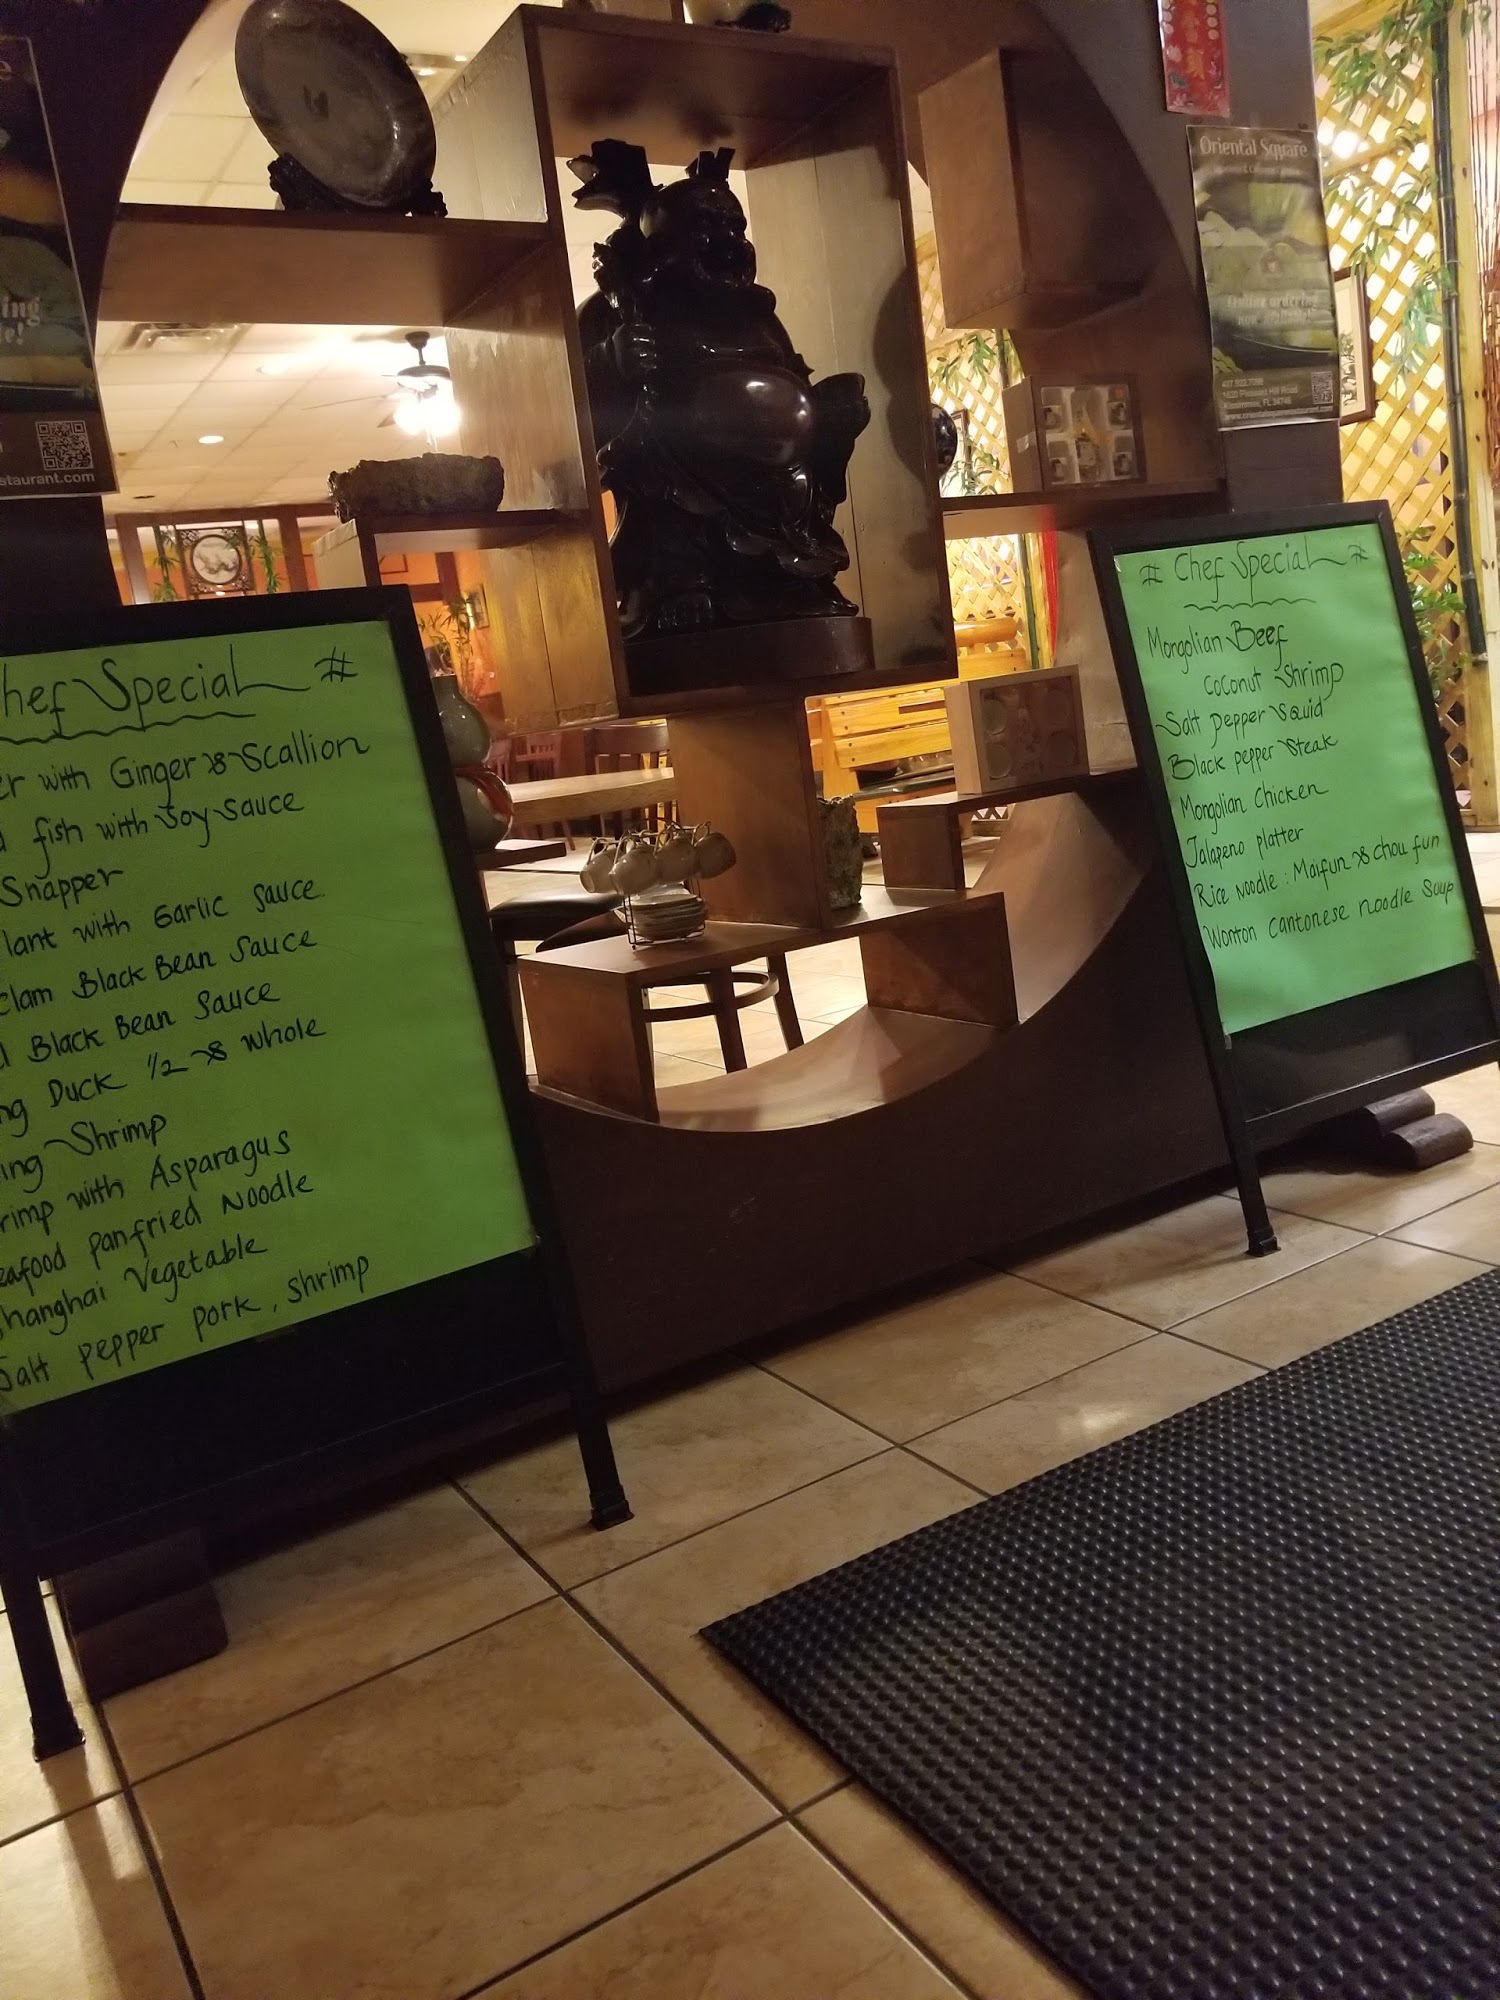 staurant.com
Chef Special #
with Ginger & Scallion
fish with Soy Sauce
Snapper
with Garlic Sauce
Clam Black Bean Sauce
Black Bean Sauce
Duck 1/2 & whole
Shrimp
with Asparagus
panfried Noodle
Shanghai Vegetable
Salt pepper pork, shrimp
Oriental Square
Online ordering
407.922.7098
1620 Pleasant Hill Road
Kissimmee, FL 34746
# Chef Special #
Mongolian Beef
Coconut Shrimp
Salt pepper Squid
Black pepper Steak
Mongolian Chicken
Jalapeno platter
Rice Noodle: Maifun & chou fun
Wonton Cantonese noodle Soup